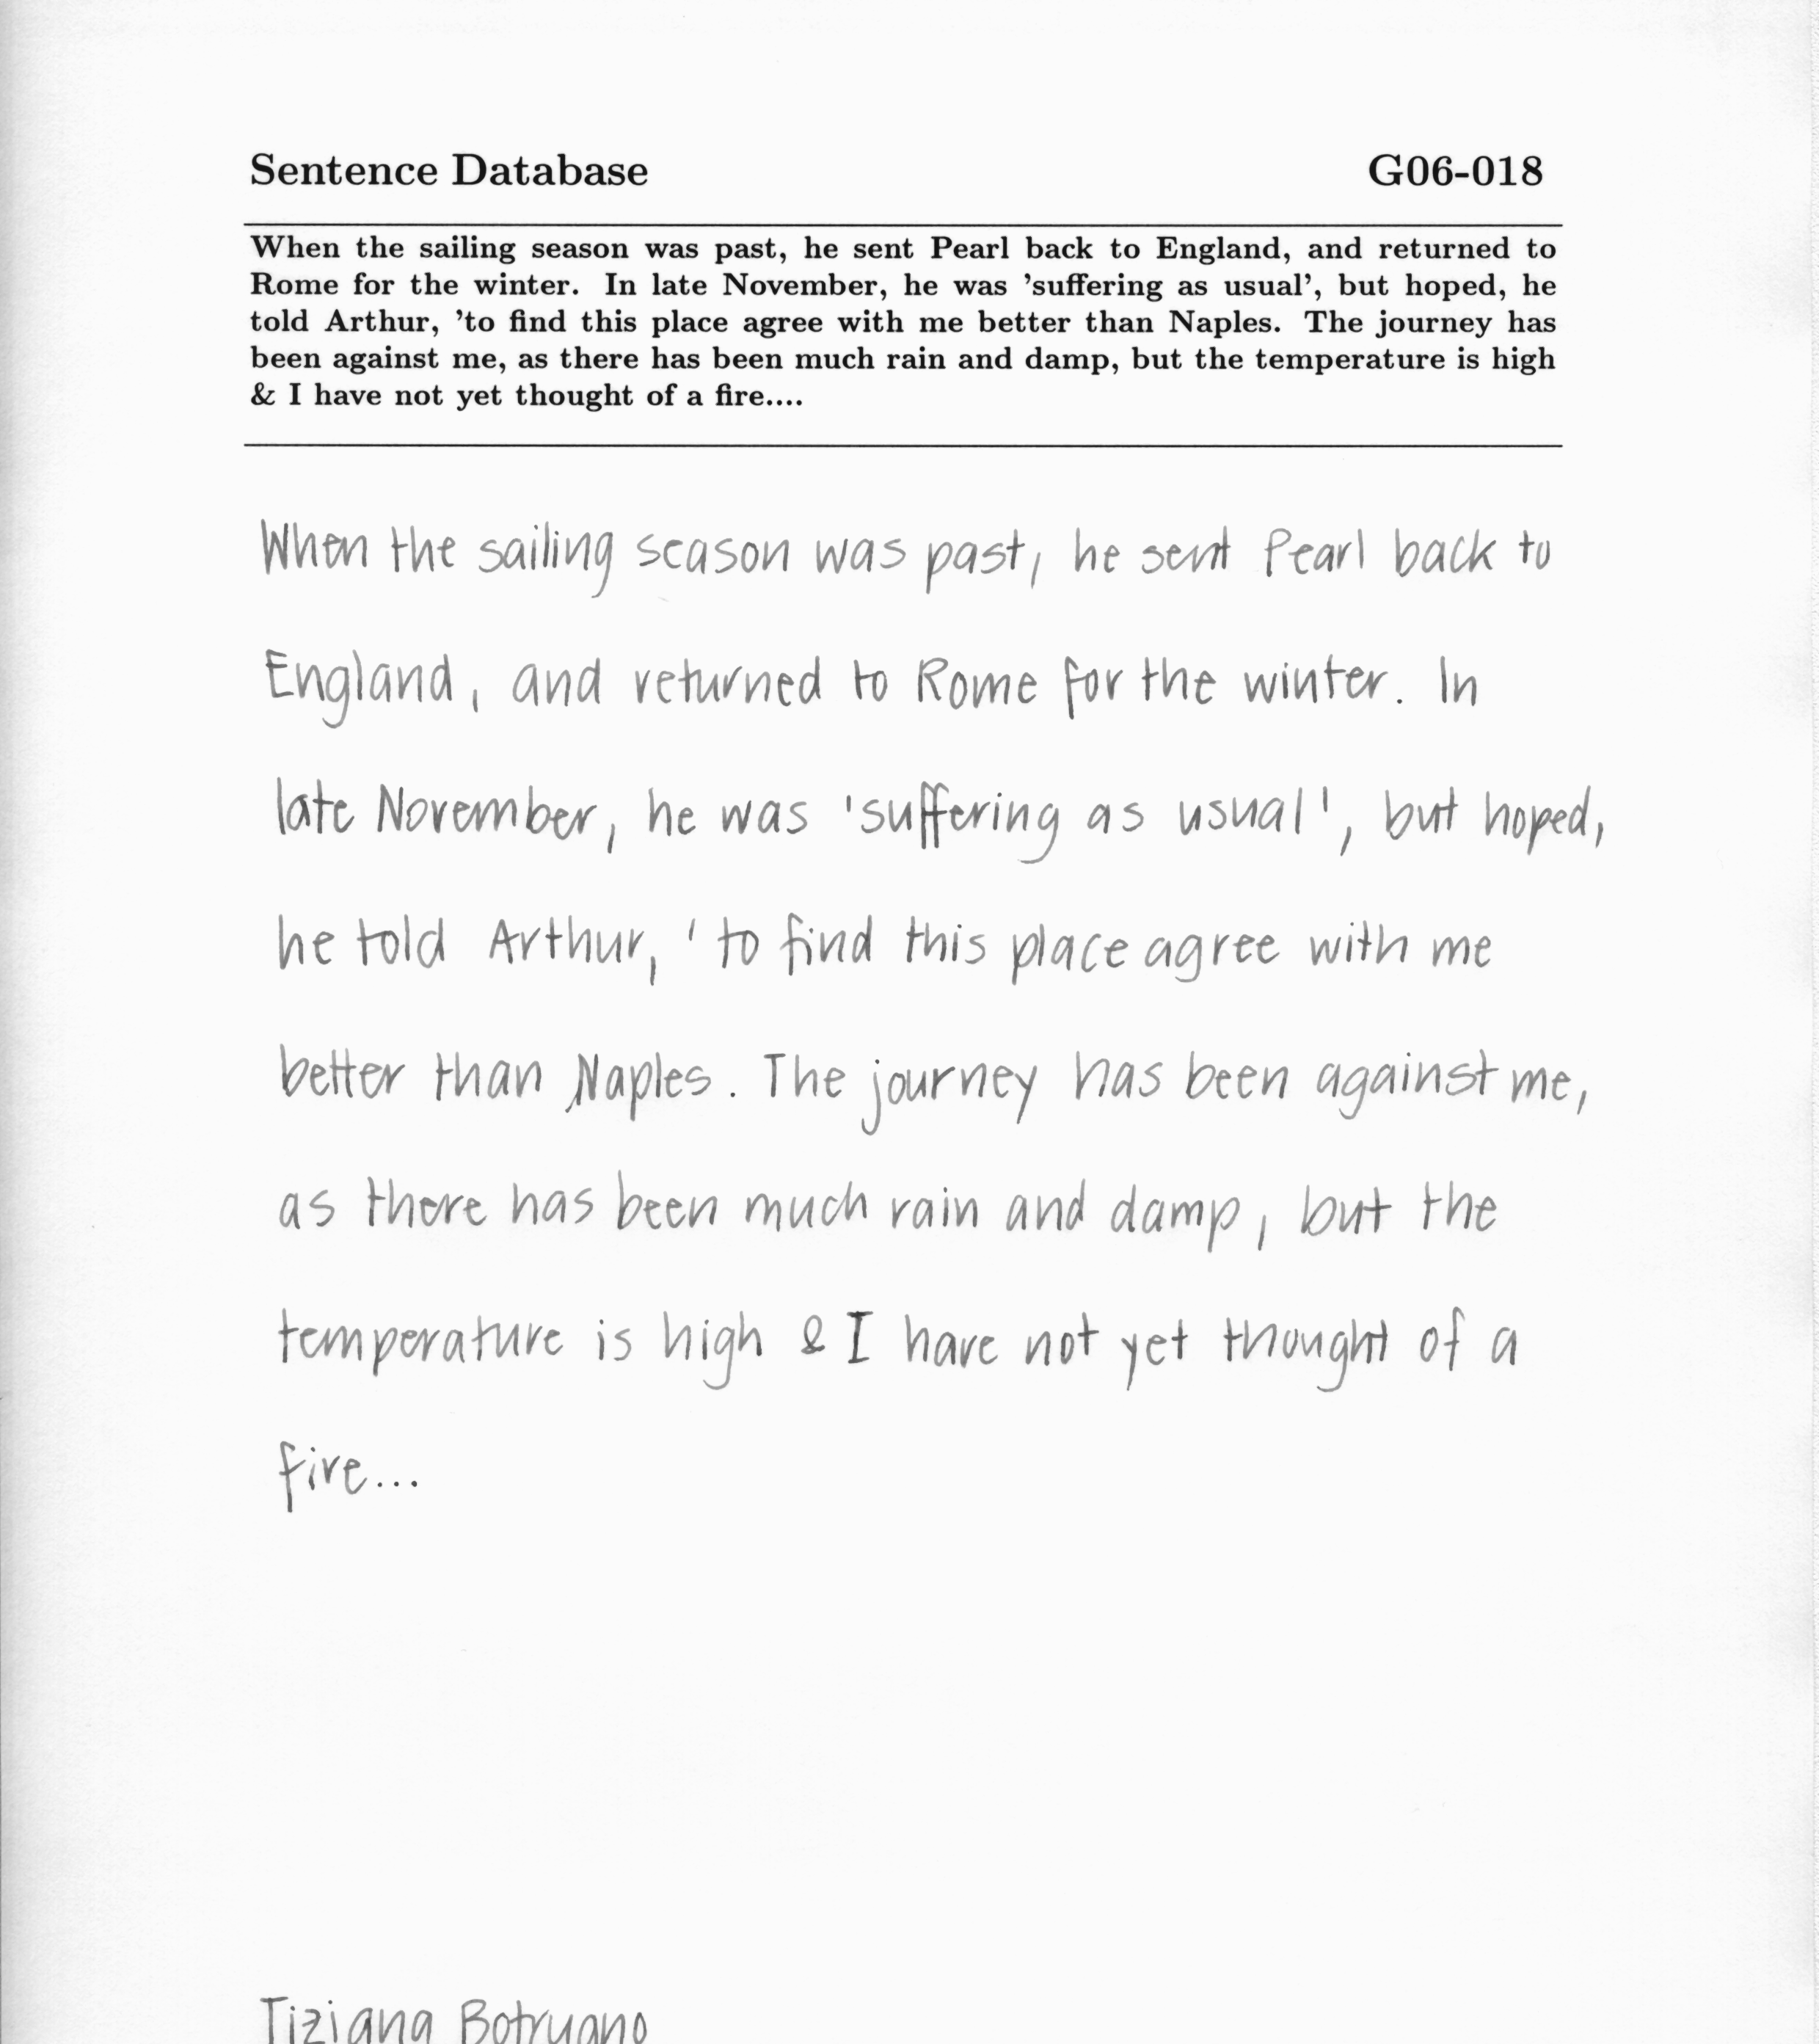 Sentence Database G06-018
When the sailing season was past, he sent Pearl back to England, and returned to
Rome for the winter. In late November, he was 'suffering as usual', but hoped, he
told Arthur, 'to find this place agree with me better than Naples. The journey has
been against me, as there has been much rain and damp, but the temperature is high
& I have not yet thought of a fire....
When the sailing season was past, he sent Pearl back to
England, and returned to Rome for the winter. In
late November, he was 'suffering as usual', but hoped,
he told Arthur, 'to find this place agree with me
better than Naples. The journey has been against me,
as there has been much rain and damp, but the
temperature is high & I have not yet thought of a
fire...
Tiziana